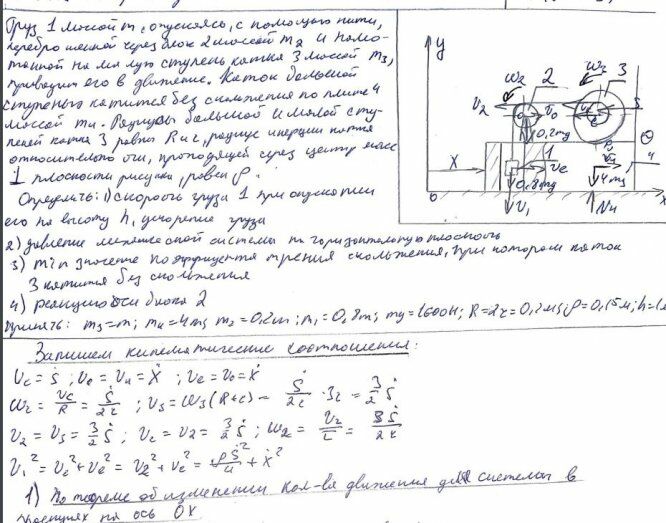 Груз 1 массой m, опускаясь, с помощью нити,
переброшенной через блок 2 массой m2 и намо-
танной на малую ступень катка 3 массой m3,
приводит его в движение. Каток большой
ступенью катится без скольжения по плите 4
массой m4. Радиусы большой и малой сту-
пеней катка 3 равны R и r, радиус инерции катка
относительно оси, проходящей через центр масс
1 плоскости рисунка, равен ρ.
Определить: 1) скорость груза 1 при опускании
его на высоту h, ускорение груза
2) давление механической системы на горизонтальную плоскость
3) min значение коэффициента трения скольжения, при котором каток
3 катится без скольжения
4) реакцию оси блока 2
Принять: m3=m; m4=4m; m2=0,2m; m1=0,8m; mg=1600Н; R=2r=0,2м; ρ=0,15м; h=1м
y
ω2
2
ω3
3
V2
V0
0,2mg
1
Ve
0,8mg
X
4
4mg
V1
0
x
Запишем кинематические соотношения:
Vc = ṡ ; V0 = V4 = ẋ ; Ve = V0 = ẋ
ω3 = Vc/R = ṡ/2r ; V3 = ω3(R+r) = ṡ/2r · 3r = 3/2 ṡ
V2 = V3 = 3/2 ṡ ; Vr = V2 = 3/2 ṡ ; ω2 = V2/r = 3ṡ/2r
V1² = Vr² + Ve² = V2² + Ve² = 9ṡ²/4 + ẋ²
1) По теореме об изменении кол-ва движения для системы в
проекциях на ось OX